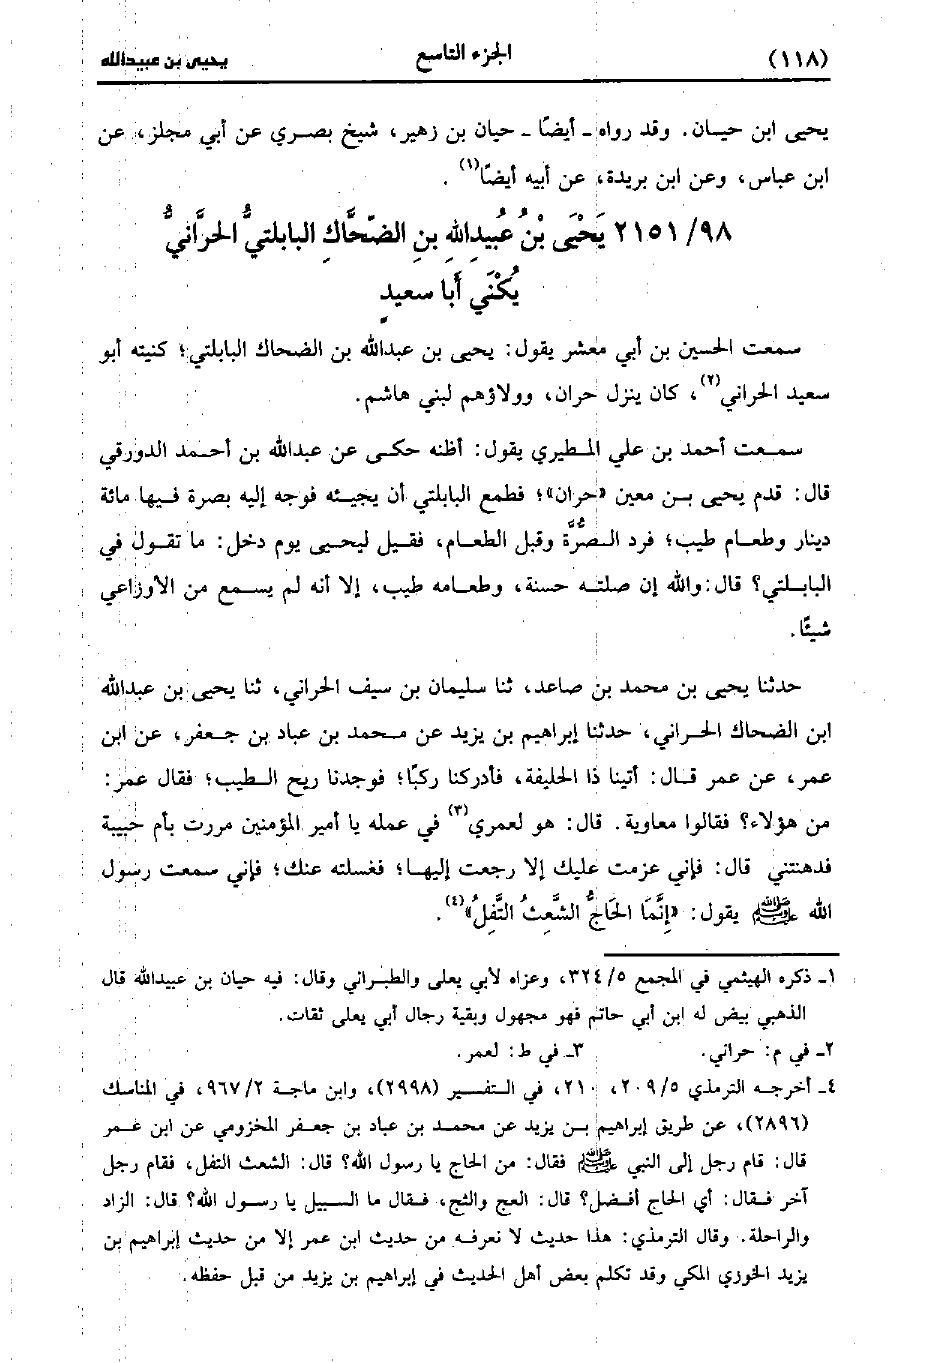 (١١٨) الجزء التاسع يحيى بن عبيدالله
يحيى ابن حيان. وقد رواه ـ أيضًا ـ حيان بن زهير، شيخ بصري عن أبي مجلز، عن
ابن عباس، وعن ابن بريدة، عن أبيه أيضًا(١) .
٢١٥١/٩٨ يَحْيَى بْنُ عُبيدِاللهِ بنِ الضَّحَّاكِ البابلتيُّ الحرَّانيُّ
يُكْنَي أَبا سعيدٍ
سمعت الحسين بن أبي معشر يقول: يحيى بن عبدالله بن الضحاك البابلتي؛ كنيته أبو
سعيد الحراني(٢)، كان ينزل حران، وولاؤهم لبني هاشم.
سمعت أحمد بن علي المطيري يقول: أظنه حكى عن عبدالله بن أحمد الدورقي
قال: قدم يحيى بن معين «حران»؛ فطمع البابلتي أن يجيئه فوجه إليه بصرة فيها مائة
دينار وطعام طيب؛ فرد الصُّرَّة وقبل الطعام، فقيل ليحيى يوم دخل: ما تقول في
البابلتي؟ قال: والله إن صلته حسنة، وطعامه طيب، إلا أنه لم يسمع من الأوزاعي
شيئًا.
حدثنا يحيى بن محمد بن صاعد، ثنا سليمان بن سيف الحراني، ثنا يحيى بن عبدالله
ابن الضحاك الحراني، حدثنا إبراهيم بن يزيد عن محمد بن عباد بن جعفر، عن ابن
عمر، عن عمر قال: أتينا ذا الحليفة، فأدركنا ركبًا؛ فوجدنا ريح الطيب؛ فقال عمر:
من هؤلاء؟ فقالوا معاوية. قال: هو لعمري(٣) في عمله يا أمير المؤمنين مررت بأم حبيبة
فدهنتني قال: فإني عزمت عليك إلا رجعت إليها؛ فغسلته عنك؛ فإني سمعت رسول
الله ﷺ يقول: «إِنَّمَا الحَاجُّ الشَّعِثُ التَّفِلُ»(٤).
١ـ ذكره الهيثمي في المجمع ٣٢٤/٥، وعزاه لأبي يعلى والطبراني وقال: فيه حيان بن عبيدالله قال
الذهبي بيض له ابن أبي حاتم فهو مجهول وبقية رجال أبي يعلى ثقات.
٢ـ في م: حراني. ٣ـ في ط: لعمر.
٤ـ أخرجه الترمذي ٢٠٩/٥، ٢١٠، في التفسير (٢٩٩٨)، وابن ماجة ٩٦٧/٢، في المناسك
(٢٨٩٦)، عن طريق إبراهيم بن يزيد عن محمد بن عباد بن جعفر المخزومي عن ابن عمر
قال: قام رجل إلى النبي ﷺ فقال: من الحاج يا رسول الله؟ قال: الشعث التفل، فقام رجل
آخر فقال: أي الحاج أفضل؟ قال: العج والثج، فقال ما السبيل يا رسول الله؟ قال: الزاد
والراحلة. وقال الترمذي: هذا حديث لا نعرفه من حديث ابن عمر إلا من حديث إبراهيم بن
يزيد الخوزي المكي وقد تكلم بعض أهل الحديث في إبراهيم بن يزيد من قبل حفظه.